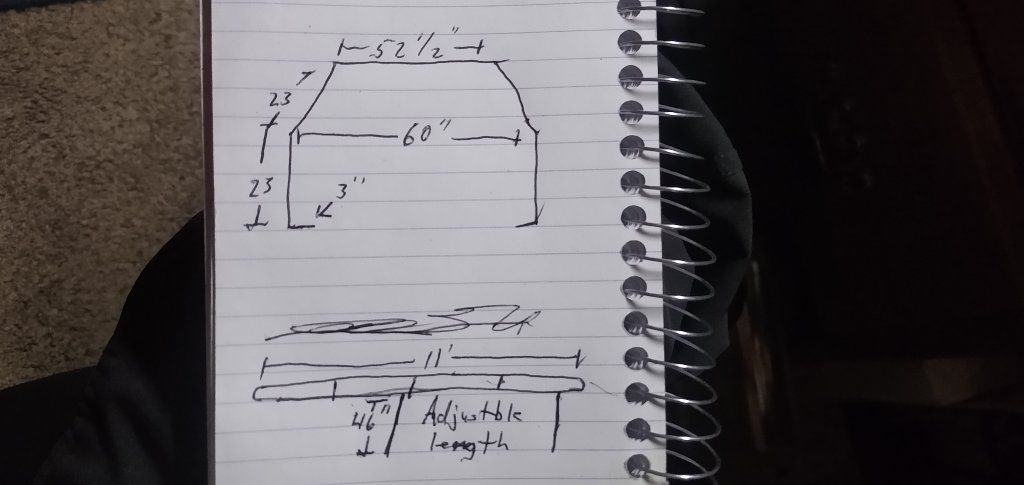 52 1/2"
23
60"
23
3"
11'
46" Adjustble
length